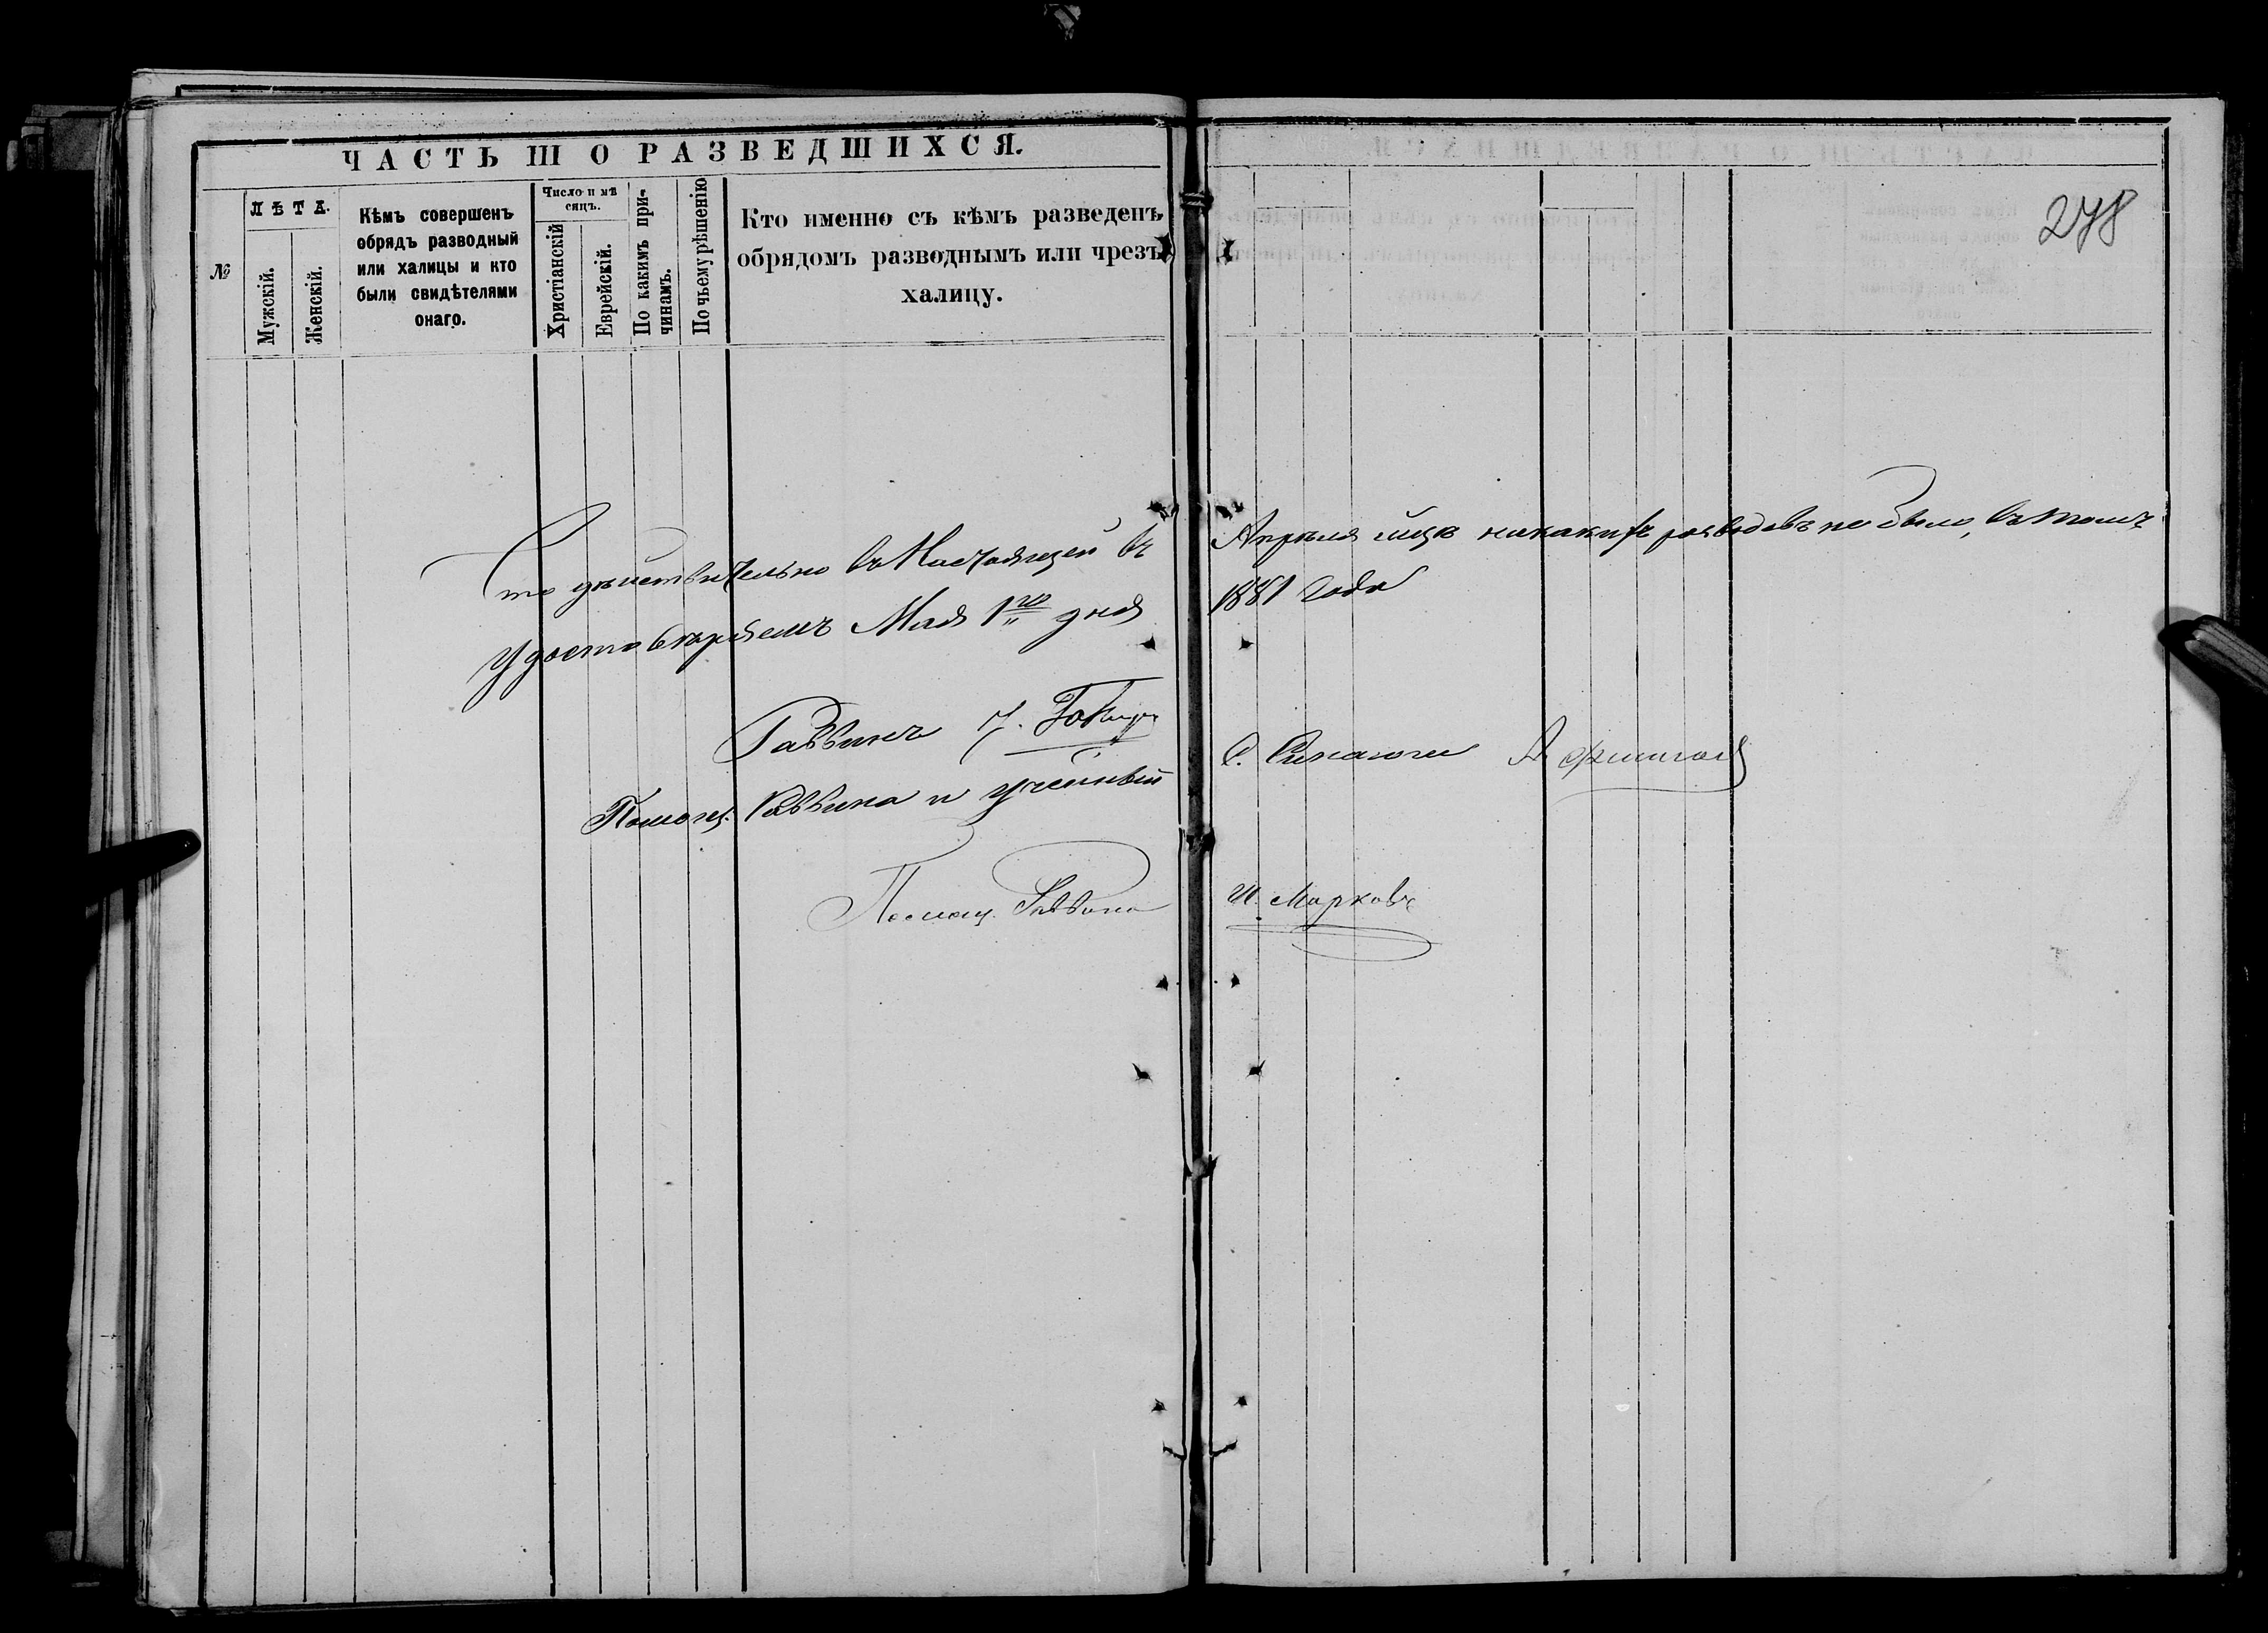 ЧАСТЬ III О РАЗВЕДШИХСЯ.
№
ЛѢТА.
Мужскій.
Женскій.
Кѣмъ совершенъ
обрядъ разводный
или халицы и кто
были свидѣтелями
онаго.
Число и мѣ
сяцъ.
Христіанскій
Еврейскій.
По какимъ при-
чинамъ.
По чьему рѣшенію
Кто именно съ кѣмъ разведенъ
обрядомъ разводнымъ или чрезъ
халицу.
278
Что дѣйствительно въ Настоящей въ Апрѣля мцѣ никакихъ разводовъ не было, въ томъ
Удостовѣряемъ Мая 1го дня 1881 Года
Раввинъ
Помощ. Раввина и ученный С. Синагоги А
Помощ. Раввина И. Марковъ